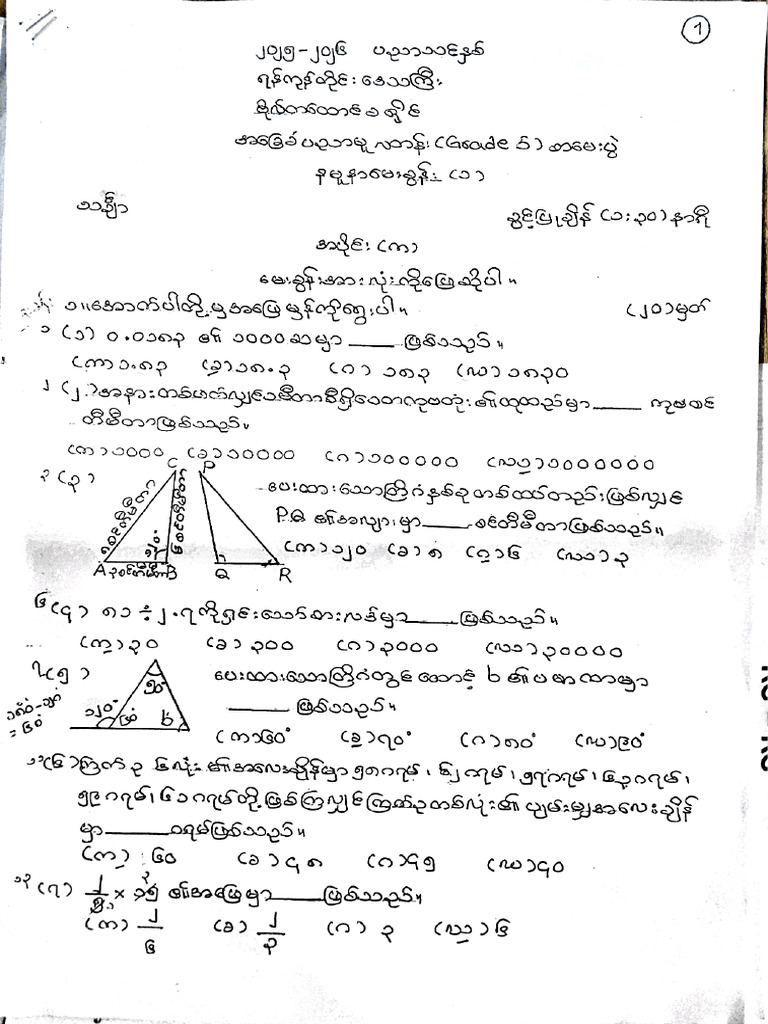 1
၂၀၂၅-၂၀၂၆ ပညာသင်နှစ်
ရန်ကုန်တိုင်းဒေသကြီး
ဗိုလ်တထောင်ခရိုင်
အခြေခံပညာမူလတန်း (Grade 5) စာမေးပွဲ
နမူနာမေးခွန်း (၁)
သင်္ချာ
ခွင့်ပြုချိန် (၁:၃၀) နာရီ
အပိုင်း (က)
မေးခွန်းအားလုံးကိုဖြေဆိုပါ။
၁။ အောက်ပါတို့မှအဖြေမှန်ကိုရွေးပါ။ (၂၀) မှတ်
၁ (၁) ၀.၀၁၈၃ ၏ ၁၀၀၀ ဆမှာ _____ ဖြစ်သည်။
(က) ၁.၈၃ (ခ) ၁၈.၃ (ဂ) ၁၈၃ (ဃ) ၁၈၃၀
၂ (၂) အနားတစ်ဖက်လျှင် ၁ မီတာစီရှိသော ကုဗတုံး၏ထုထည်မှာ _____ ကုဗစင်
တီမီတာဖြစ်သည်။
(က) ၁၀၀၀ (ခ) ၁၀၀၀၀ (ဂ) ၁၀၀၀၀၀ (ဃ) ၁၀၀၀၀၀၀
၃ (၃)
C P
၅စင်တီမီတာ
၁၂၀°
A ၃စင်တီမီတာ B Q R
ပေးထားသောတြိဂံနှစ်ခုတစ်ထပ်တည်းဖြစ်လျှင်
PQ ၏အလျားမှာ _____ စင်တီမီတာဖြစ်သည်။
(က) ၁၂၀ (ခ) ၈ (ဂ) ၆ (ဃ) ၃
၆ (၄) ၈၁ ÷ ၂.၇ ကိုရှင်းသော်စားလဒ်မှာ _____ ဖြစ်သည်။
(က) ၃၀ (ခ) ၃၀၀ (ဂ) ၃၀၀၀ (ဃ) ၃၀၀၀၀
၇ (၅)
၅၀°
၁၂၀° ၆၀° b
= ၆၀°
ပေးထားသောတြိဂံတွင်ထောင့် b ၏ပမာဏမှာ
_____ ဖြစ်သည်။
(က) ၆၀° (ခ) ၇၀° (ဂ) ၈၀° (ဃ) ၉၀°
၁၁ (၆) ကြက်ဥ ၆ လုံး၏အလေးချိန်မှာ ၅၈ ဂရမ်၊ ၆၂ ဂရမ်၊ ၅၇ ဂရမ်၊ ၆၃ ဂရမ်၊
၅၉ ဂရမ်၊ ၆၁ ဂရမ်တို့ဖြစ်ကြလျှင်ကြက်ဥတစ်လုံး၏ပျမ်းမျှအလေးချိန်
မှာ _____ ဂရမ်ဖြစ်သည်။
(က) ၆၀ (ခ) ၄၈ (ဂ) ၄၅ (ဃ) ၄၀
၁၃ (၇) ၂/၅ × ၁၅ ၏အဖြေမှာ _____ ဖြစ်သည်။
(က) ၂/၆ (ခ) ၂/၃ (ဂ) ၃ (ဃ) ၆